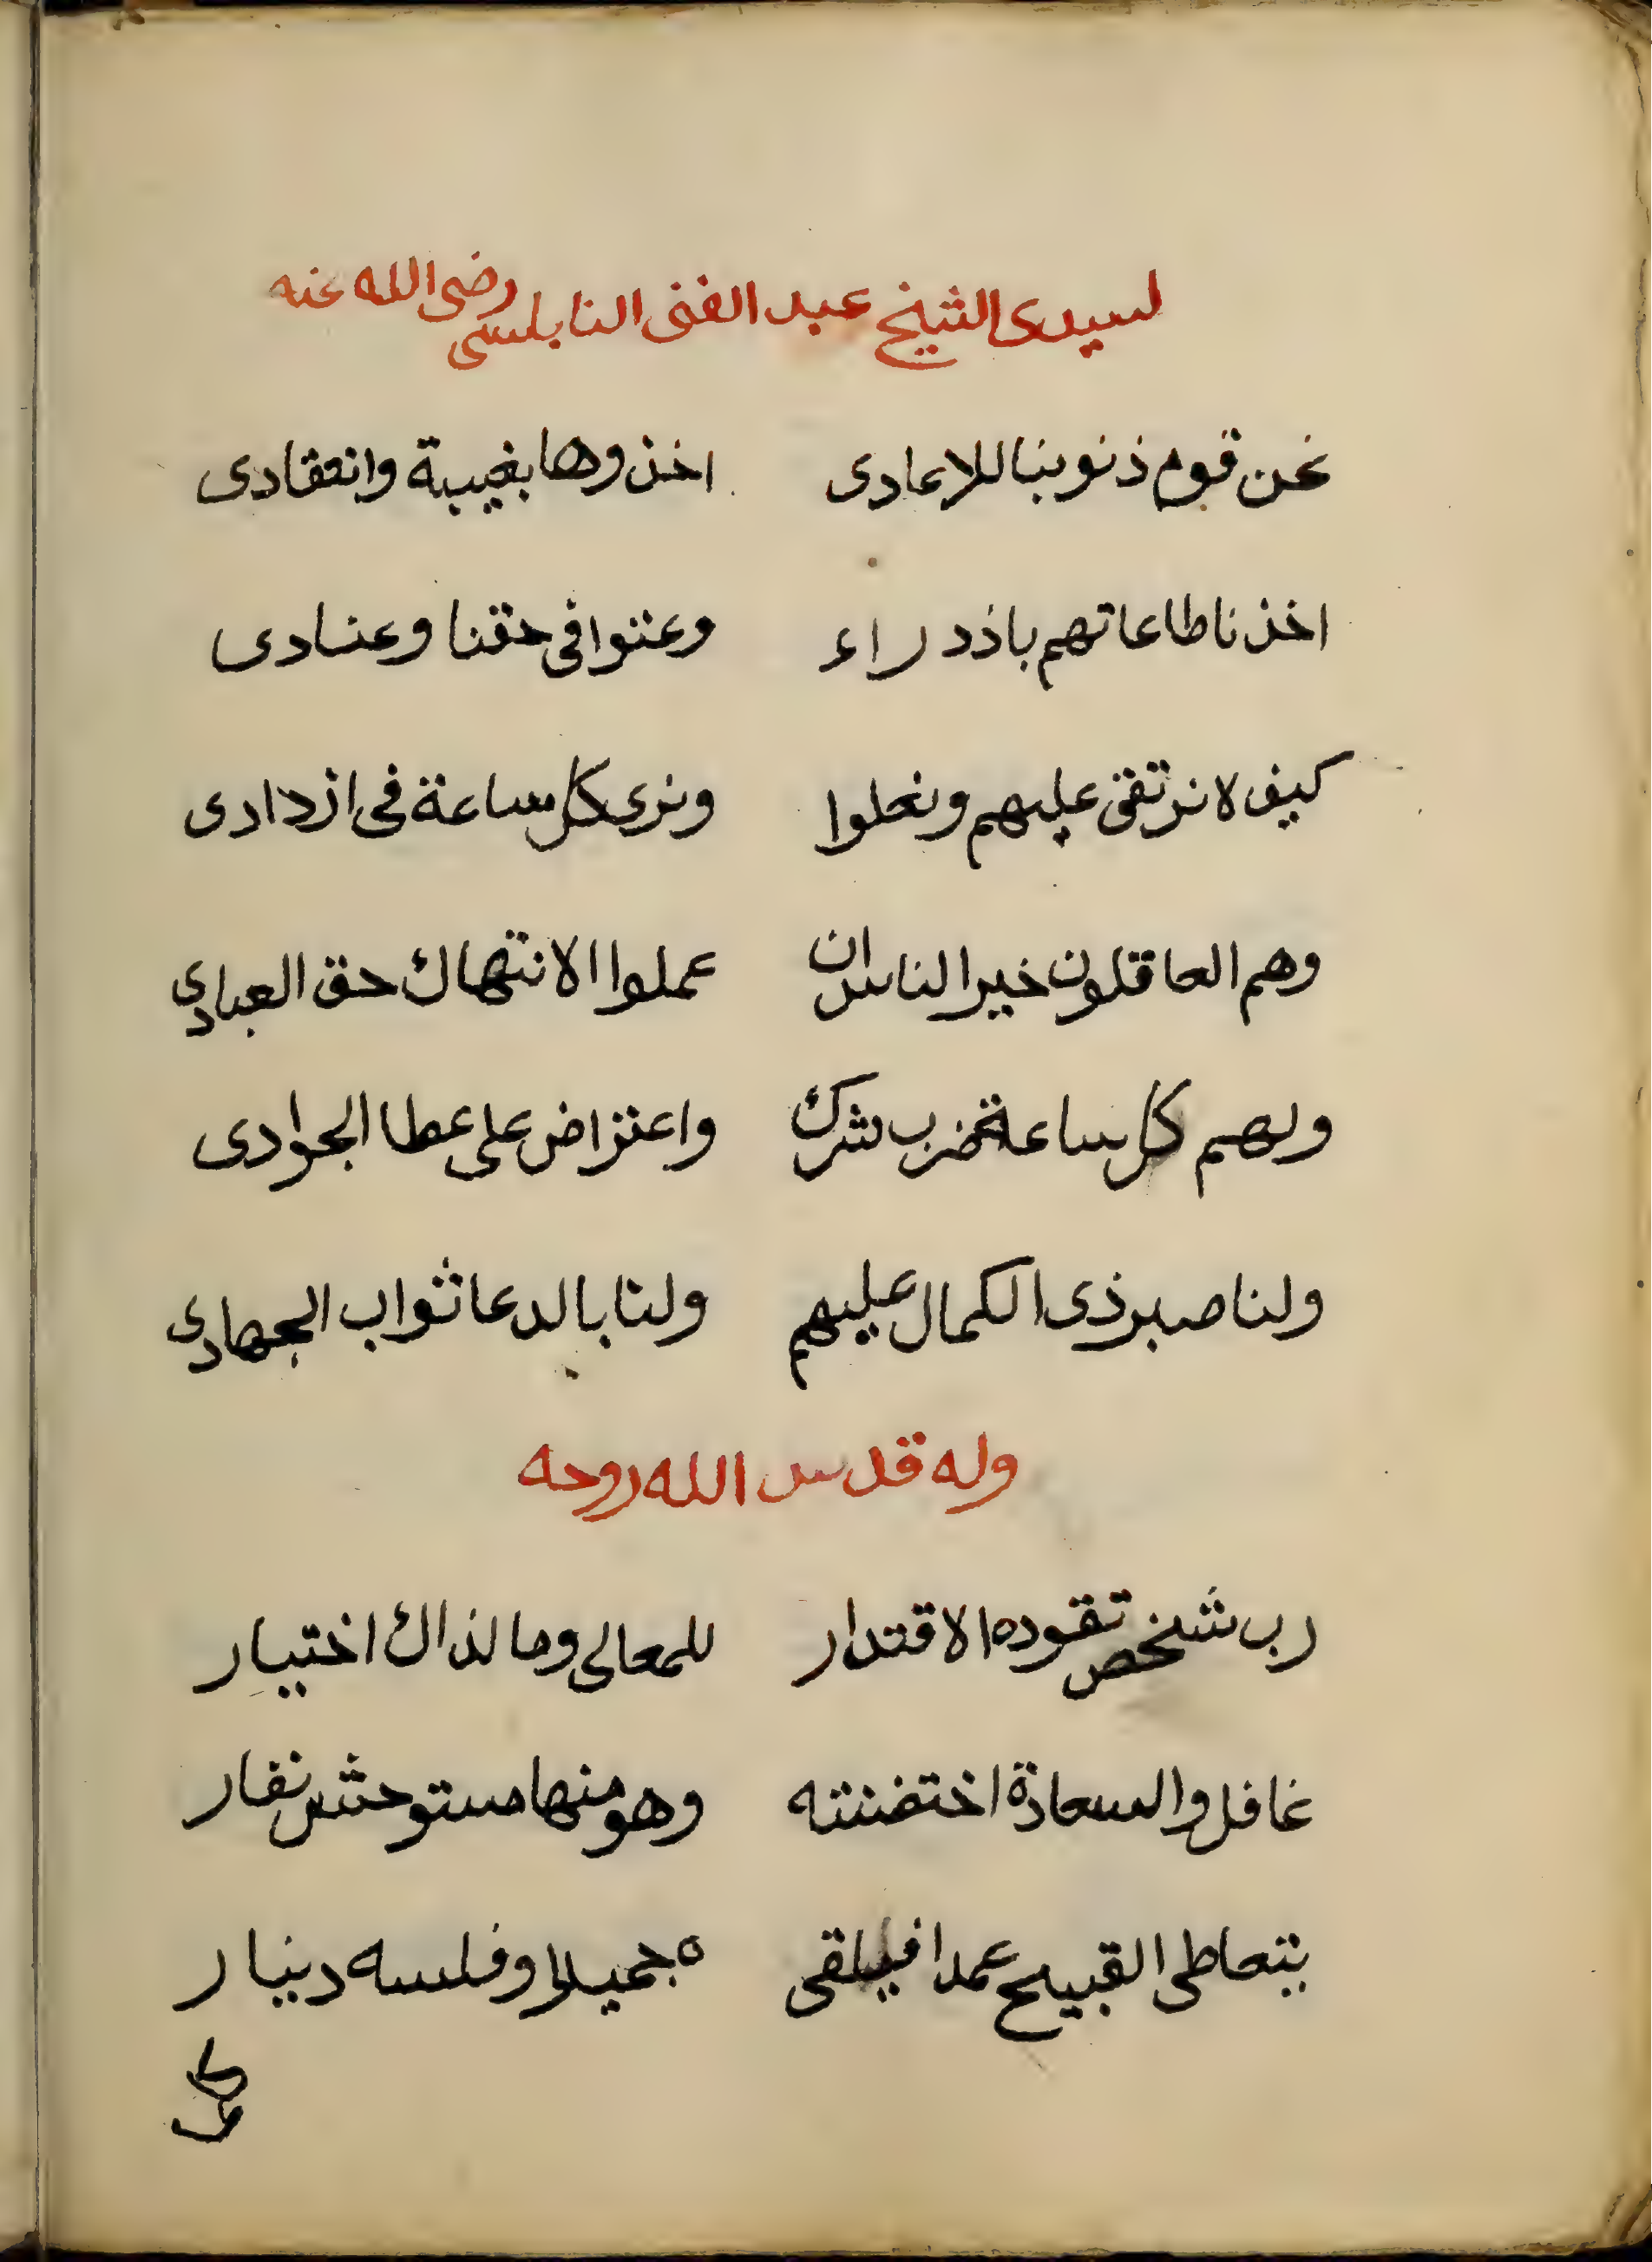 لسيدى الشيخ عبد الغنى النابلسى رضى الله عنه
نحن قوم ذنوبنا للاعادى اخذوها بغيبة وانتقادى
اخذنا طاعاتهم باذدراء وعتوا فى حقنا وعنادى
كيف لا نرتقى عليهم ونعلوا ونرى كل ساعة فى ازدادى
وهم العاقلون خير الناس ان عملوا الانتهاك حق العبادى
ولهم كل ساعة ضرب شرك واعتراض على عطا الجوادى
ولنا صبر ذى الكمال عليهم ولنا بالدعا ثواب الجهادى
وله قدس الله روحه
رب شخص تقوده الاقتدار للمعالى وما لذاك اختيار
غافل والسعادة اختضنته وهو منها مستوحش نفار
يتعاطى القبيح عمدا فيلقى ه جميلا وفلسه دينار
كل